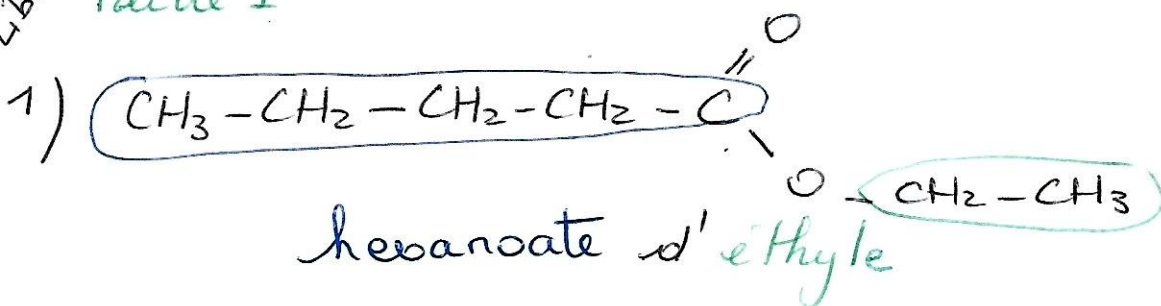 Partie I
O
1) CH₃-CH₂-CH₂-CH₂-C
O-CH₂-CH₃
hexanoate d'éthyle